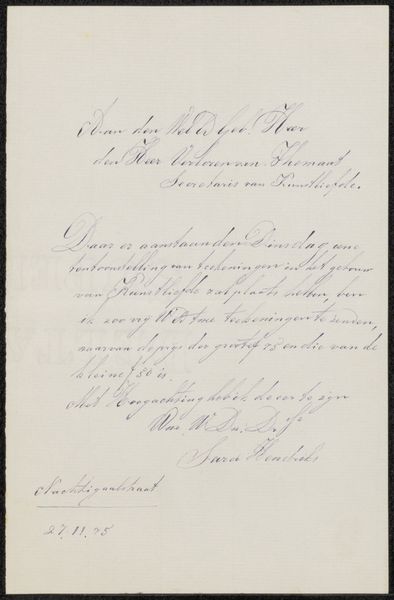 Aan den Wel Ed Geb. Heer
den Heer Verloren van Themaat
Secretaris van Kunstliefde.
Daar er aanstaanden Dinsdag eene
tentoonstelling van teekeningen in het gebouw
van Kunstliefde zal plaats hebben, ben
ik zoo vrij U twee teekeningen te zenden,
waarvan de prijs der groote f 75 en die van de
kleine f 50 is.
Met Hoogachting heb ik de eer te zijn
Uwe W. Dw. D.sse
Sara Hendriks
Nachtigaalstraat
27.11.75